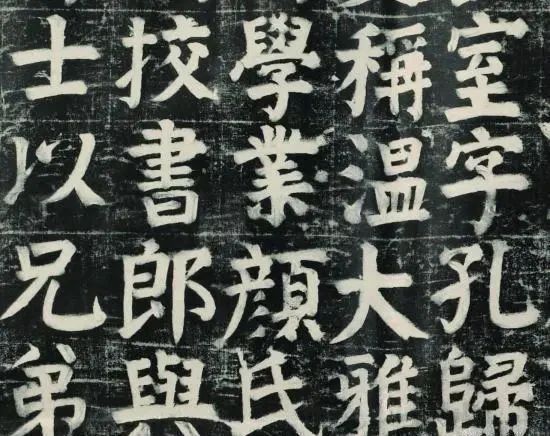 室字孔歸
稱温大雅
學業顏氏
挍書郎與
士以兄弟